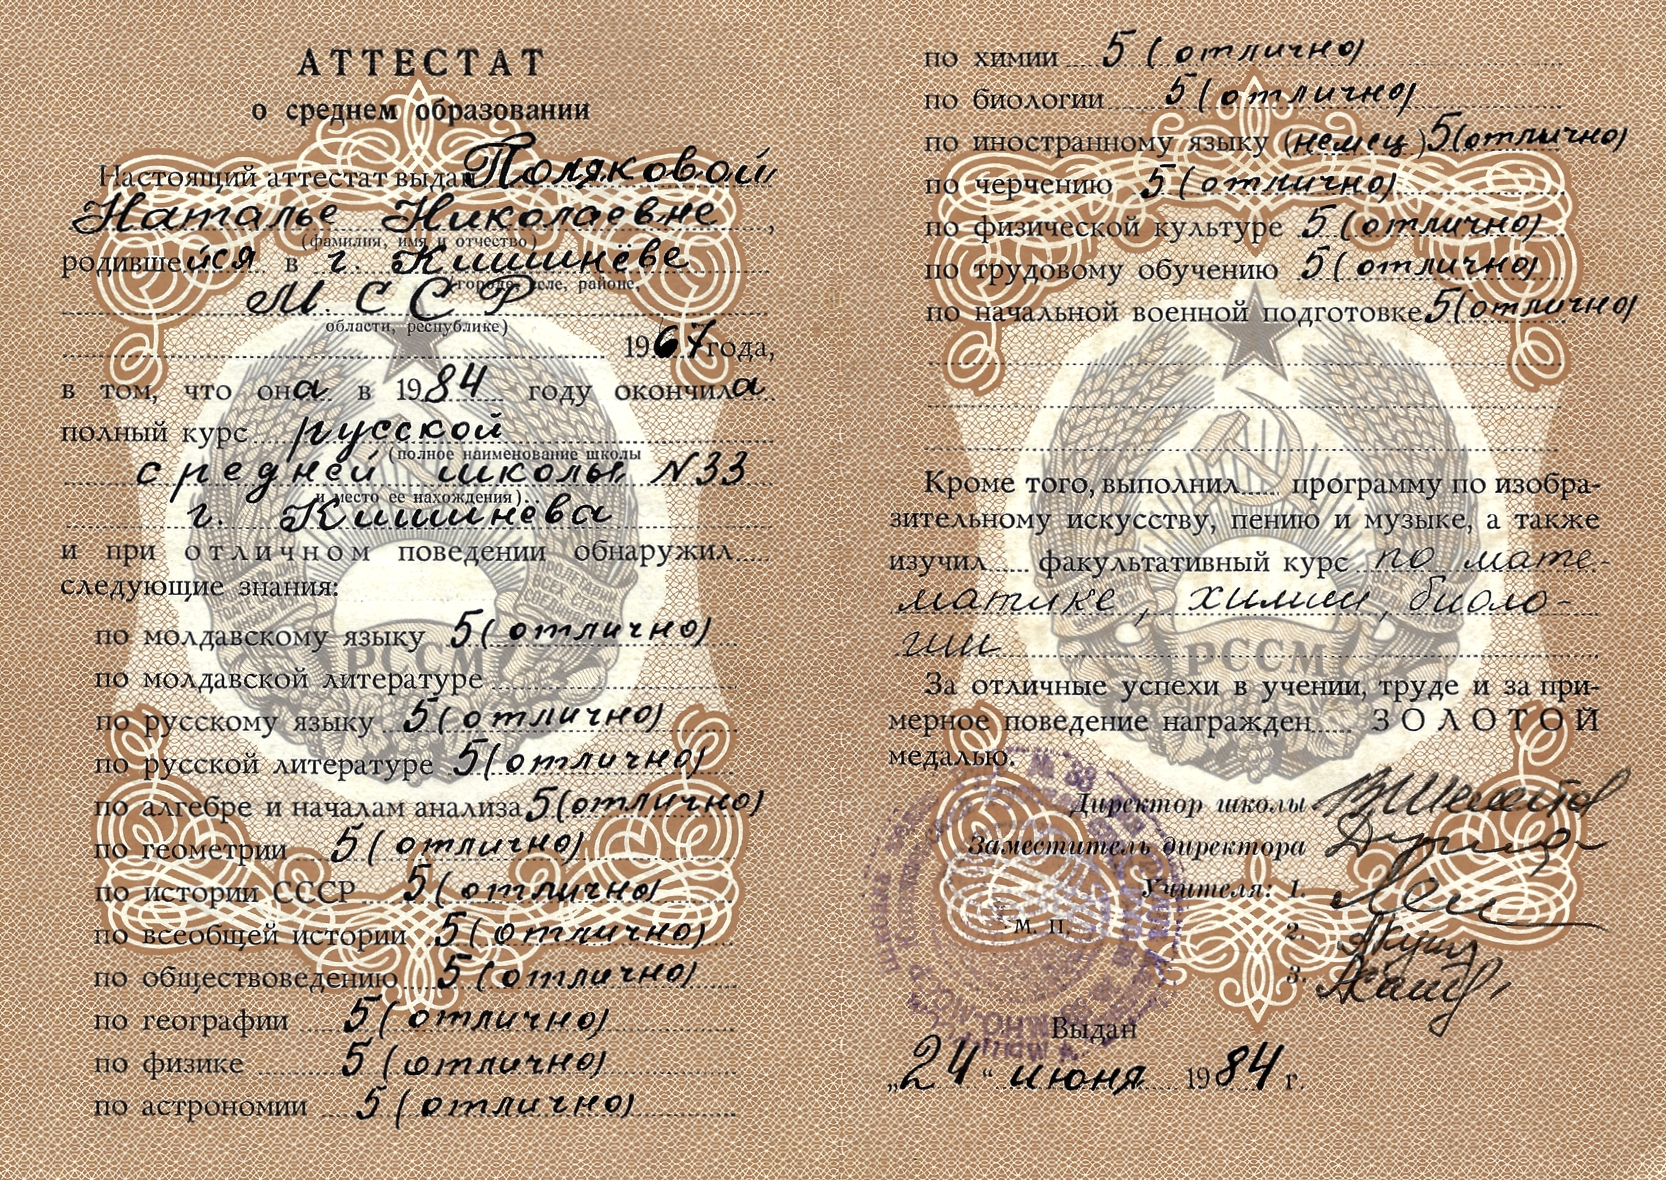 АТТЕСТАТ
о среднем образовании
Настоящий аттестат выдан Поляковой
Наталье Николаевне,
(фамилия, имя и отчество)
родившейся в г. Кишинёве
городе, селе, районе,
М. С С Р
области, республике)
1967 года,
в том, что она в 1984 году окончила
полный курс русской
(полное наименование школы
средней школы N 33
и место ее нахождения)
г. Кишинёва
и при ОТЛИЧНОМ поведении обнаружил
следующие знания:
по молдавскому языку 5 (отлично)
по молдавской литературе
по русскому языку 5 (отлично)
по русской литературе 5 (отлично)
по алгебре и началам анализа 5 (отлично)
по геометрии 5 (отлично)
по истории СССР 5 (отлично)
по всеобщей истории 5 (отлично)
по обществоведению 5 (отлично)
по географии 5 (отлично)
по физике 5 (отлично)
по астрономии 5 (отлично)
РССМ
по химии 5 (отлично)
по биологии 5 (отлично)
по иностранному языку (немец) 5 (отлично)
по черчению 5 (отлично)
по физической культуре 5 (отлично)
по трудовому обучению 5 (отлично)
по начальной военной подготовке 5 (отлично)
Кроме того, выполнил программу по изобра-
зительному искусству, пению и музыке, а также
изучил факультативный курс по мате-
матике, химии, биоло-
гии
РССМ
За отличные успехи в учении, труде и за при-
мерное поведение награжден ЗОЛОТОЙ
медалью.
Директор школы
Заместитель директора
Учителя: 1.
2.
3.
м. п.
Выдан
„24“ июня 1984 г.